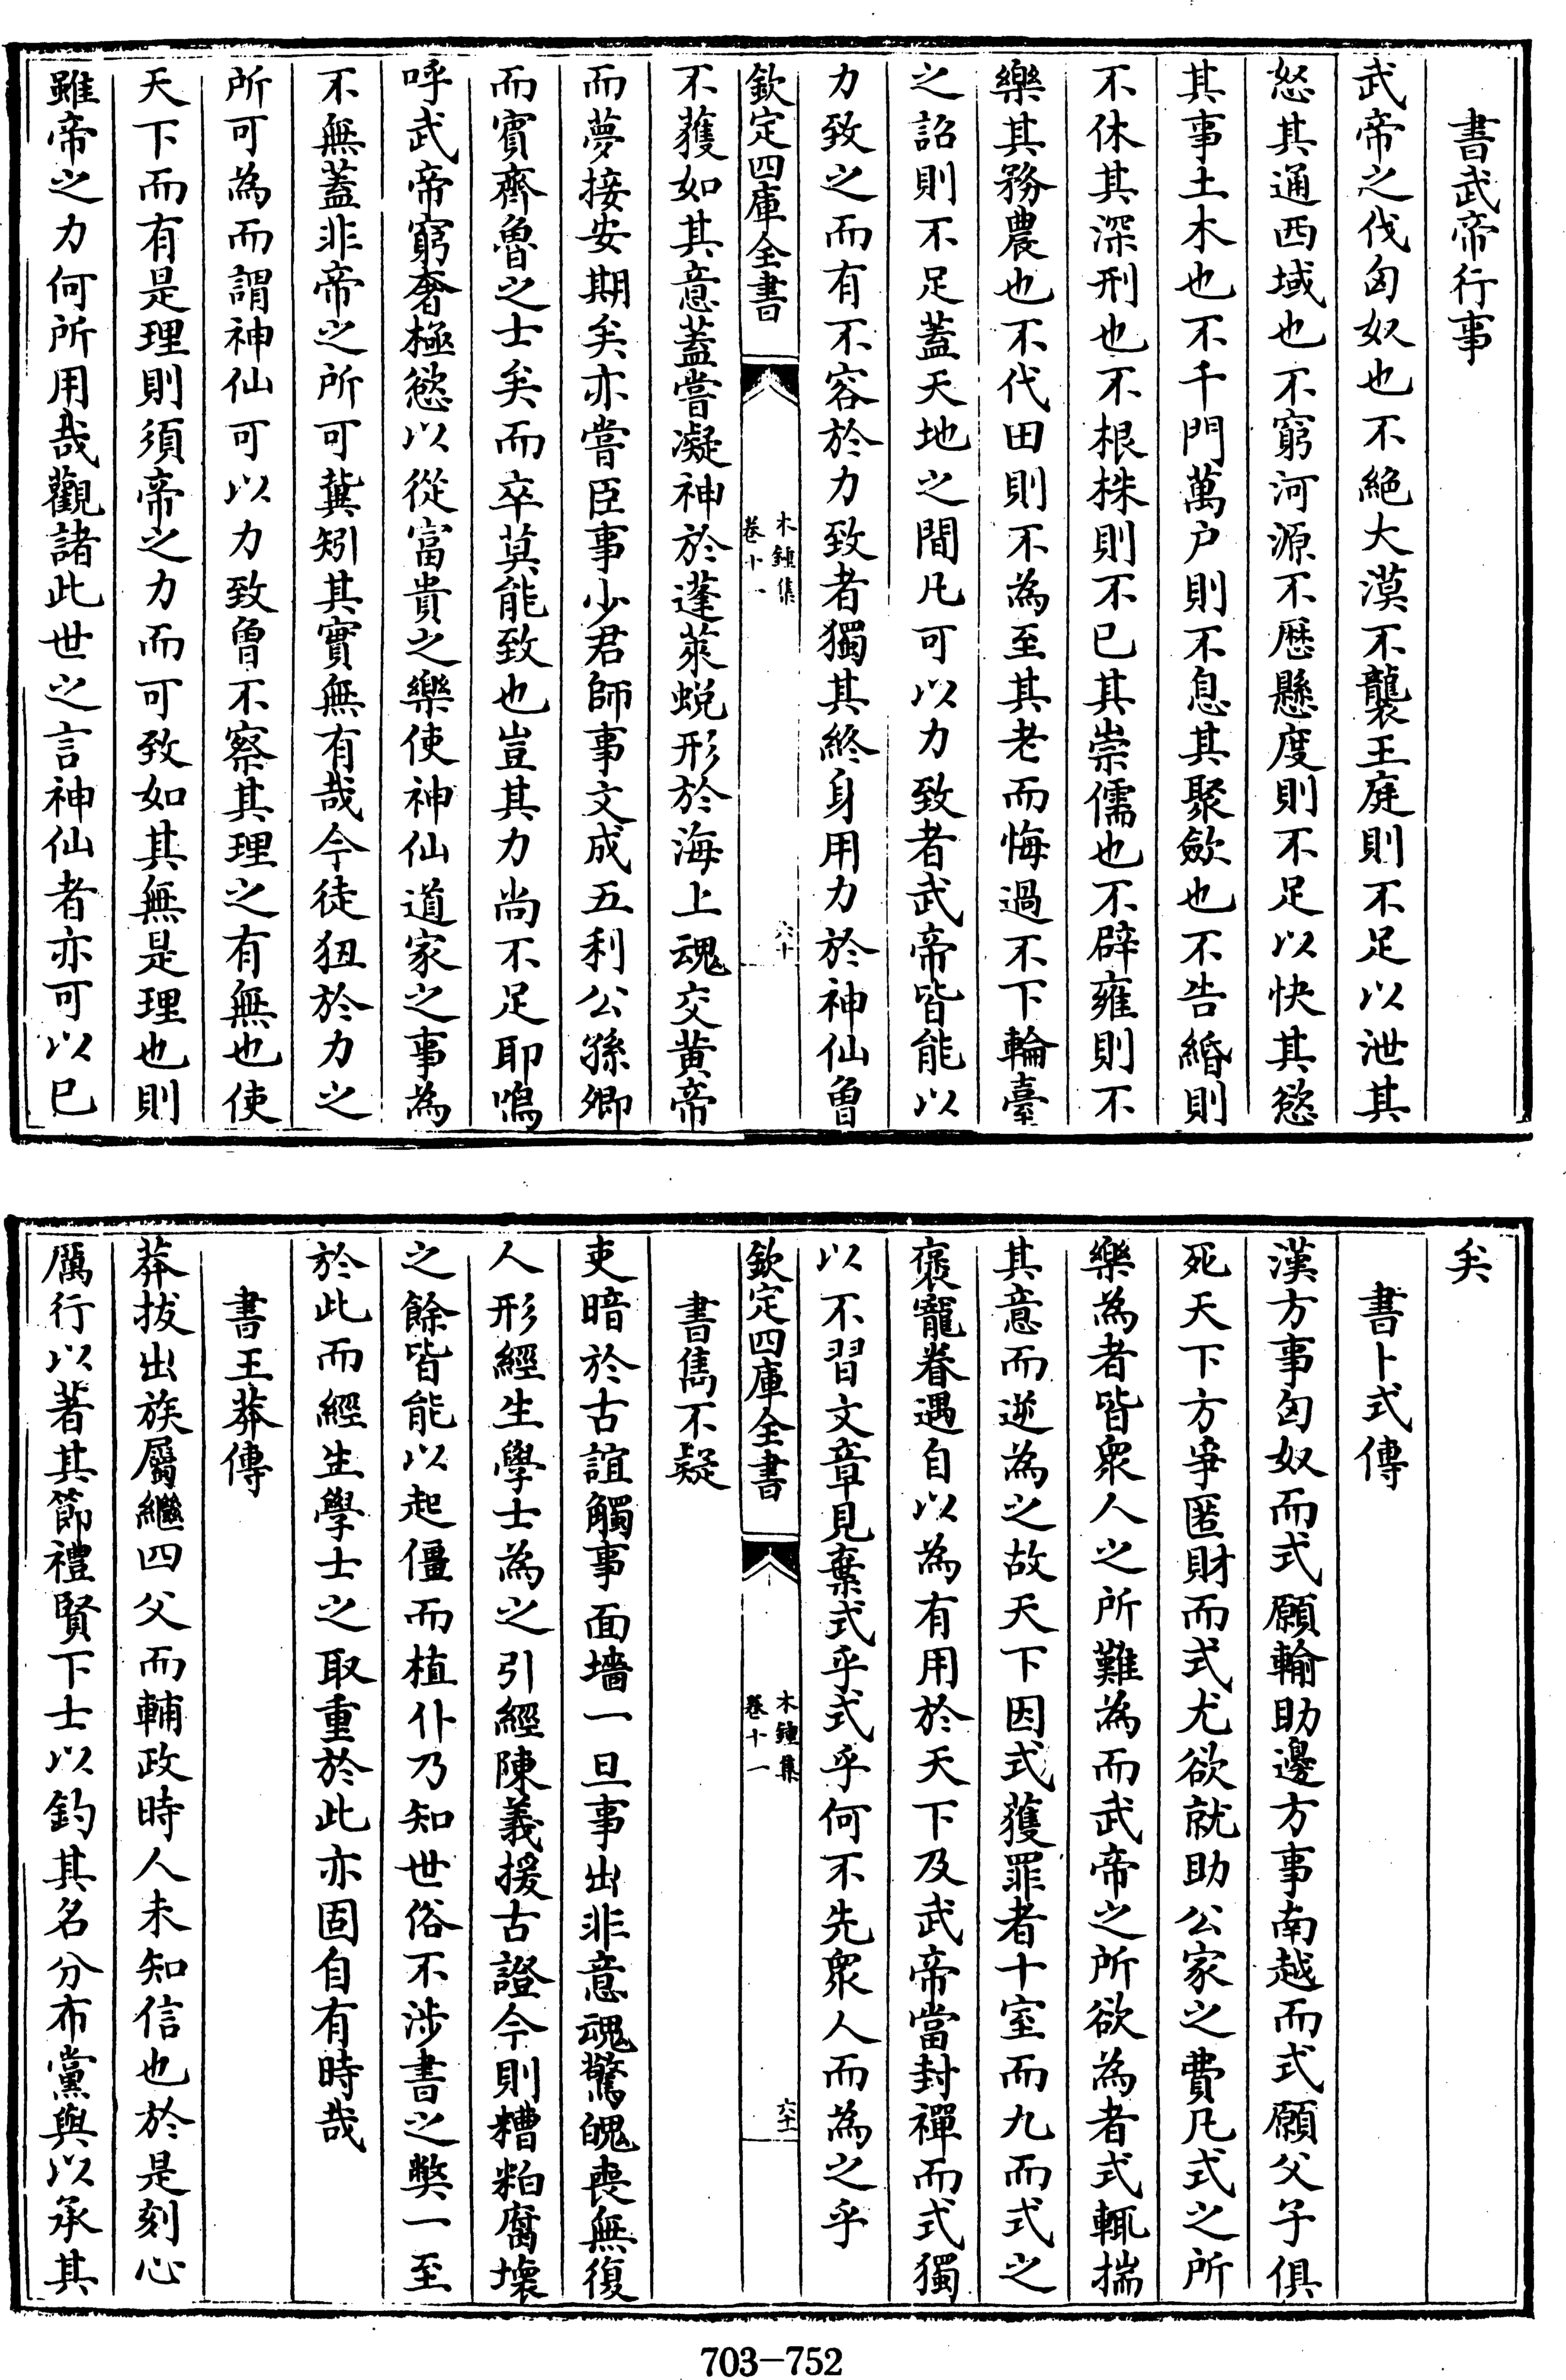 書武帝行事
武帝之伐匈奴也不絕大漠不襲王庭則不足以泄其
怒其通西域也不窮河源不歷懸度則不足以快其慾
其事土木也不千門萬户則不息其聚歛也不告緡則
不休其深刑也不根株則不已其崇儒也不辟雍則不
樂其務農也不代田則不為至其老而悔過不下輪臺
之詔則不足蓋天地之間凡可以力致者武帝皆能以
力致之而有不容於力致者獨其終身用力於神仙曾
欽定四庫全書
木鍾集
卷十一
六十
不獲如其意蓋嘗凝神於蓬萊蛻形於海上魂交黄帝
而夢接安期矣亦嘗臣事少君師事文成五利公孫卿
而實齊魯之士矣而卒莫能致也豈其力尚不足耶嗚
呼武帝窮奢極慾以從富貴之樂使神仙道家之事為
不無蓋非帝之所可冀矧其實無有哉今徒狃於力之
所可為而謂神仙可以力致曾不察其理之有無也使
天下而有是理則須帝之力而可致如其無是理也則
雖帝之力何所用哉觀諸此世之言神仙者亦可以已
矣
書卜式傳
漢方事匈奴而式願輸助邊方事南越而式願父子俱
死天下方爭匿財而式尤欲就助公家之費凡式之所
樂為者皆衆人之所難為而武帝之所欲為者式輒揣
其意而逆為之故天下因式獲罪者十室而九而式之
褒寵眷遇自以為有用於天下及武帝當封禪而式獨
以不習文章見棄式乎式乎何不先衆人而為之乎
欽定四庫全書
木鍾集
卷十一
六十一
書雋不疑
吏暗於古誼觸事面墻一旦事出非意魂驚魄喪無復
人形經生學士為之引經陳義援古證今則糟粕腐壞
之餘皆能以起僵而植仆乃知世俗不涉書之獘一至
於此而經生學士之取重於此亦固自有時哉
書王莽傳
莽拔出族屬繼四父而輔政時人未知信也於是刻心
厲行以著其節禮賢下士以釣其名分布黨與以承其
703-752